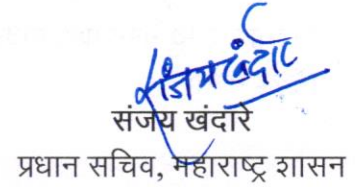 संजय खंदारे
संजय खंदारे
प्रधान सचिव, महाराष्ट्र शासन